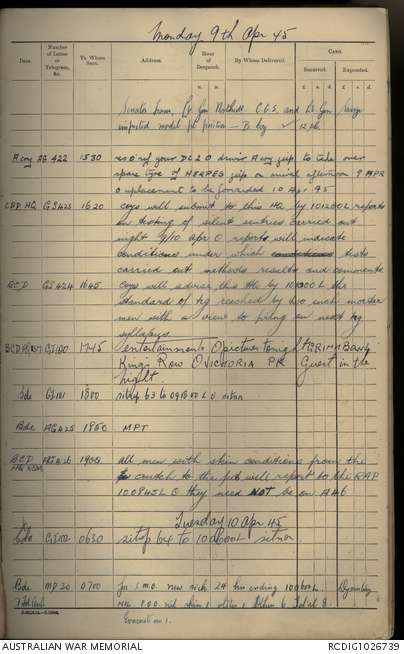 Monday 9th Apr 45
Date.
Number of Letter or Telegram, &c.
To Whom Sent.
Address.
Hour of Despatch.
By Whom Delivered.
Cash.
Received.
Expended.
Senator Fraser, Lt Gen Northcott C.G.S. and Lt Gen
inspected model pit position – B Coy
A Coy AG 422 1530 O ref your DC20 driver A Coy jeep to take over
spare type of HERPES jeep on arrival afternoon 9 APR
O replacement to be forwarded 10 Apr 45
GS423 1620 Coys will submit to this HQ by 101200L reports
on testing of silent sentries carried out
night 9/10 Apr O reports will indicate
conditions under which tests
carried out methods results and comments
BCD GS424 1645 Coys will advise this HQ by L the
standard of tg reached by two inch mortar
men with a view to firing on next tg
syllabus
BCD 1745 entertainments O pictures tonight
King's Row O VICTORIA PK Guest in the
night.
Bde 1800 sitrep 63 to 091800L O sitnor
Bde AG425 1850 MPT
BCD 1900 all men with skin conditions from the
crutch to the feet will report to the RAP
100845L O they need NOT be on AA6
Tuesday 10 Apr 45
Bde 0630 sitrep 64 to 100600L sitnor
Bde MD20 0700 for S.M.O. new sick 24 hrs ending 100600L Dysentery
7 Fd Amb skin 1 others 6 Total 8.
Evacuation 1.
AUSTRALIAN WAR MEMORIAL
RCDIG1026739